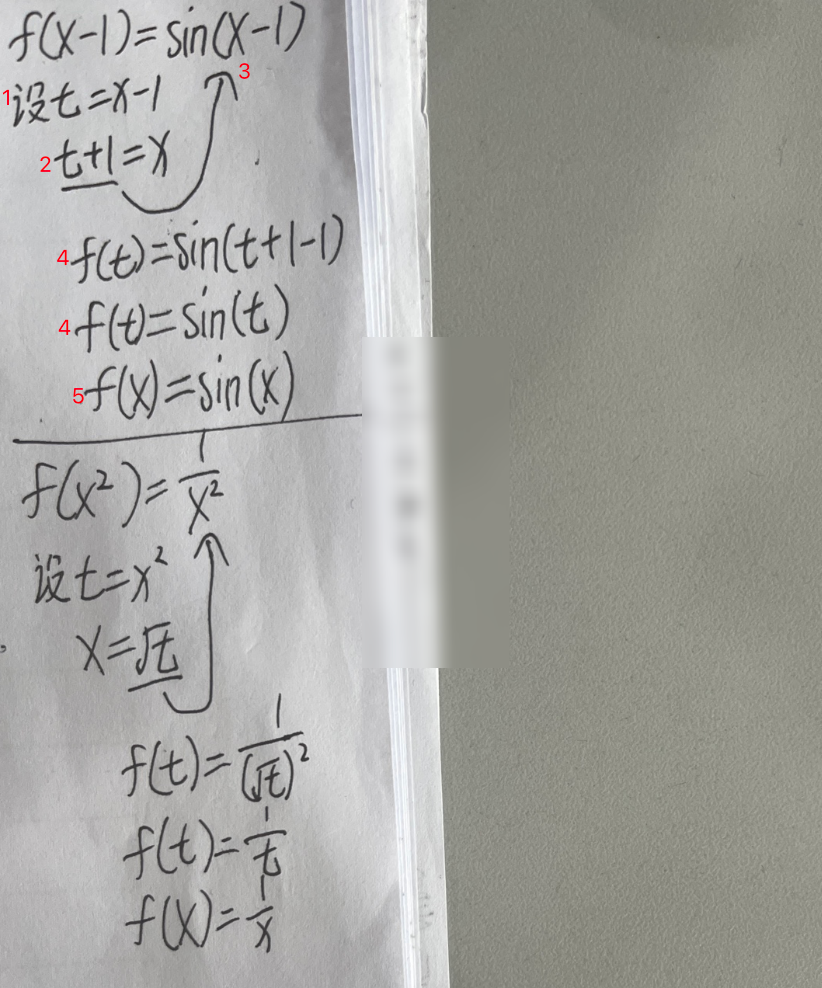 f(x-1)=sin(x-1)
1设t=x-1 3
2t+1=x
4f(t)=sin(t+1-1)
4f(t)=sin(t)
5f(x)=sin(x)
f(x²)=1/x²
设t=x²
x=√t
f(t)=1/(√t)²
f(t)=1/t
f(x)=1/x